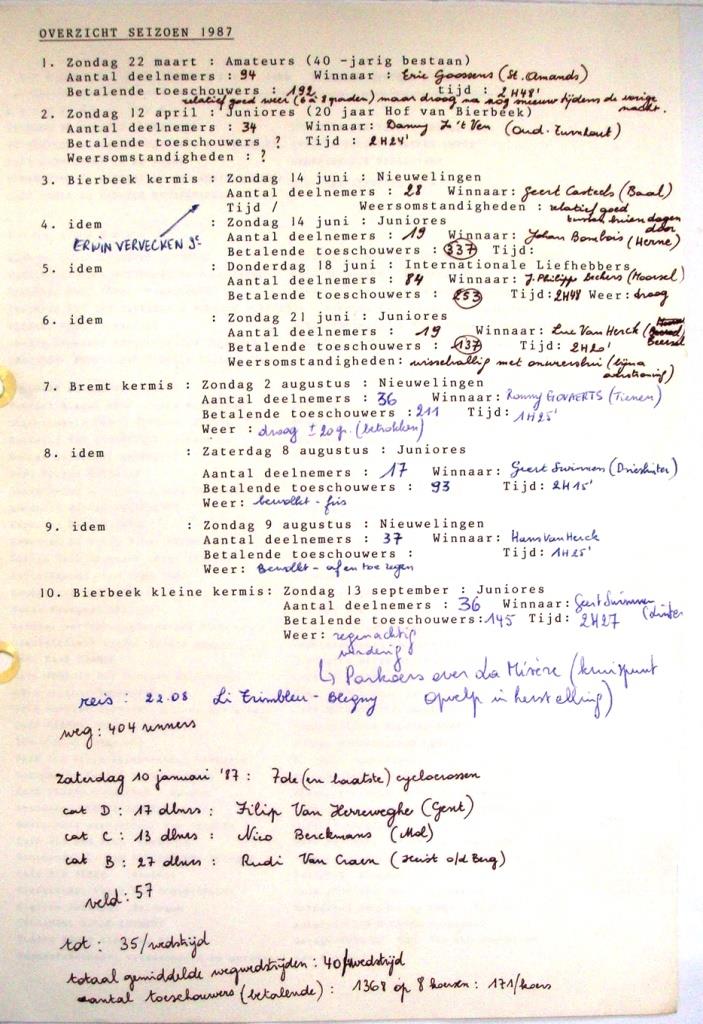 OVERZICHT SEIZOEN 1987
1. Zondag 22 maart : Amateurs (40 -jarig bestaan)
Aantal deelnemers : 94 Winnaar : Eric Goossens (St. Amands)
Betalende toeschouwers : 192 tijd : 2H48'
relatief goed weer (6 à 8 graden) maar droog na nog nieuw tijdens de vorige nacht.
2. Zondag 12 april : Juniores (20 jaar Hof van Bierbeek)
Aantal deelnemers : 34 Winnaar: Danny In 't Ven (Oud. Turnhout)
Betalende toeschouwers ? Tijd : 2H24'
Weersomstandigheden : ?
3. Bierbeek kermis : Zondag 14 juni : Nieuwelingen
Aantal deelnemers : 28 Winnaar: Geert Casteels (Baal)
Tijd / Weersomstandigheden : relatief goed
tussen buien dagen door
4. idem : Zondag 14 juni : Juniores
ERWIN VERVECKEN 9e
Aantal deelnemers : 19 Winnaar: Johan Bombois (Herne)
Betalende toeschouwers : 337 Tijd:
5. idem : Donderdag 18 juni : Internationale Liefhebbers
Aantal deelnemers : 84 Winnaar: J. Philippe (Moorsel)
Betalende toeschouwers : 253 Tijd: 2H48 Weer: droog
6. idem : Zondag 21 juni : Juniores
Aantal deelnemers : 19 Winnaar: Luc Van Herck (Beersel
Betalende toeschouwers : 137 Tijd: 2H20'
Weersomstandigheden: wisselvallig met onweersbui (bijna
7. Bremt kermis : Zondag 2 augustus : Nieuwelingen
Aantal deelnemers : 36 Winnaar: Ronny GOVAERTS (Tienen)
Betalende toeschouwers :211 Tijd: 1H25'
Weer : droog ± 20 gr. (betrokken)
8. idem : Zaterdag 8 augustus : Juniores
Aantal deelnemers : 17 Winnaar: Geert Swinnen (Drieslinter)
Betalende toeschouwers : 93 Tijd: 2H15'
Weer: bewolkt - fris
9. idem : Zondag 9 augustus : Nieuwelingen
Aantal deelnemers : 37 Winnaar: Hans Van Herck
Betalende toeschouwers : Tijd: 1H25'
Weer: Bewolkt - af en toe regen
10. Bierbeek kleine kermis: Zondag 13 september : Juniores
Aantal deelnemers : 36 Winnaar: Geert Swinnen (Linter
Betalende toeschouwers:145 Tijd: 2H27
Weer: regenachtig
winderig
↳ Parkoers over La Misère (kruispunt
Opvelp in herstelling)
reis : 22.08 Li Trimbleu - Blegny
weg : 404 renners
Zaterdag 10 januari '87 : 7de (en laatste) cyclocrossen
cat D : 17 dlnrs : Filip Van Herreweghe (Gent)
cat C : 13 dlnrs : Nico Berckmans (Mol)
cat B : 27 dlnrs : Rudi Van Craen (Heist o/d Berg)
veld : 57
tot : 35/wedstrijd
totaal gemiddelde wegwedstrijden : 40/wedstrijd
aantal toeschouwers (betalende) : 1368 op 8 koersen : 171/koers